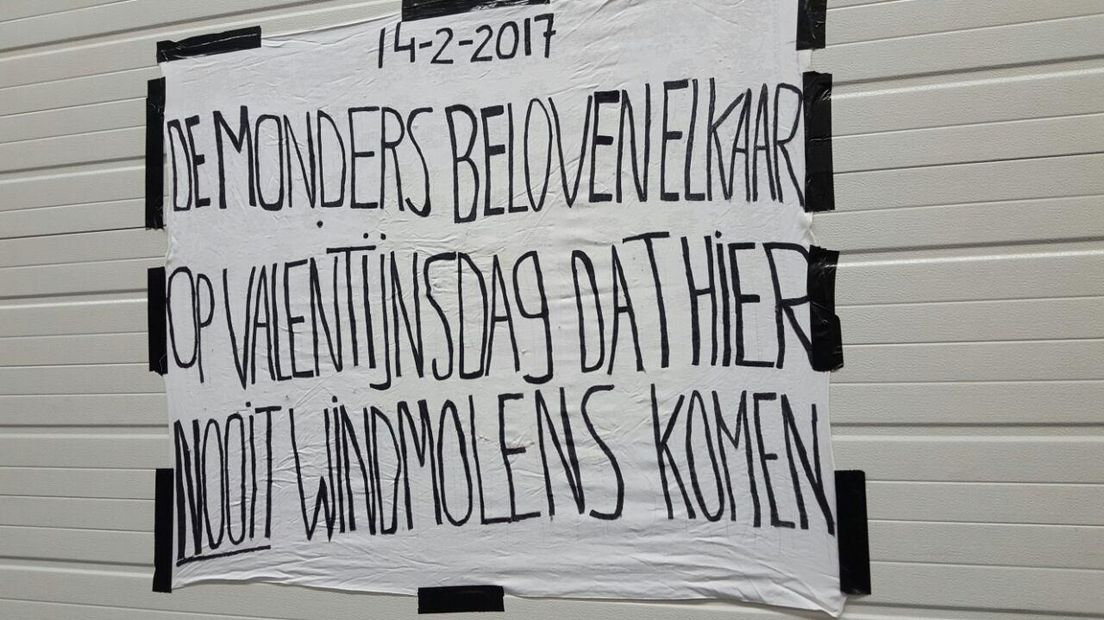 14-2-2017
DE MONDERS BELOVEN ELKAAR
OP VALENTIJNSDAG DAT HIER
NOOIT WINDMOLENS KOMEN